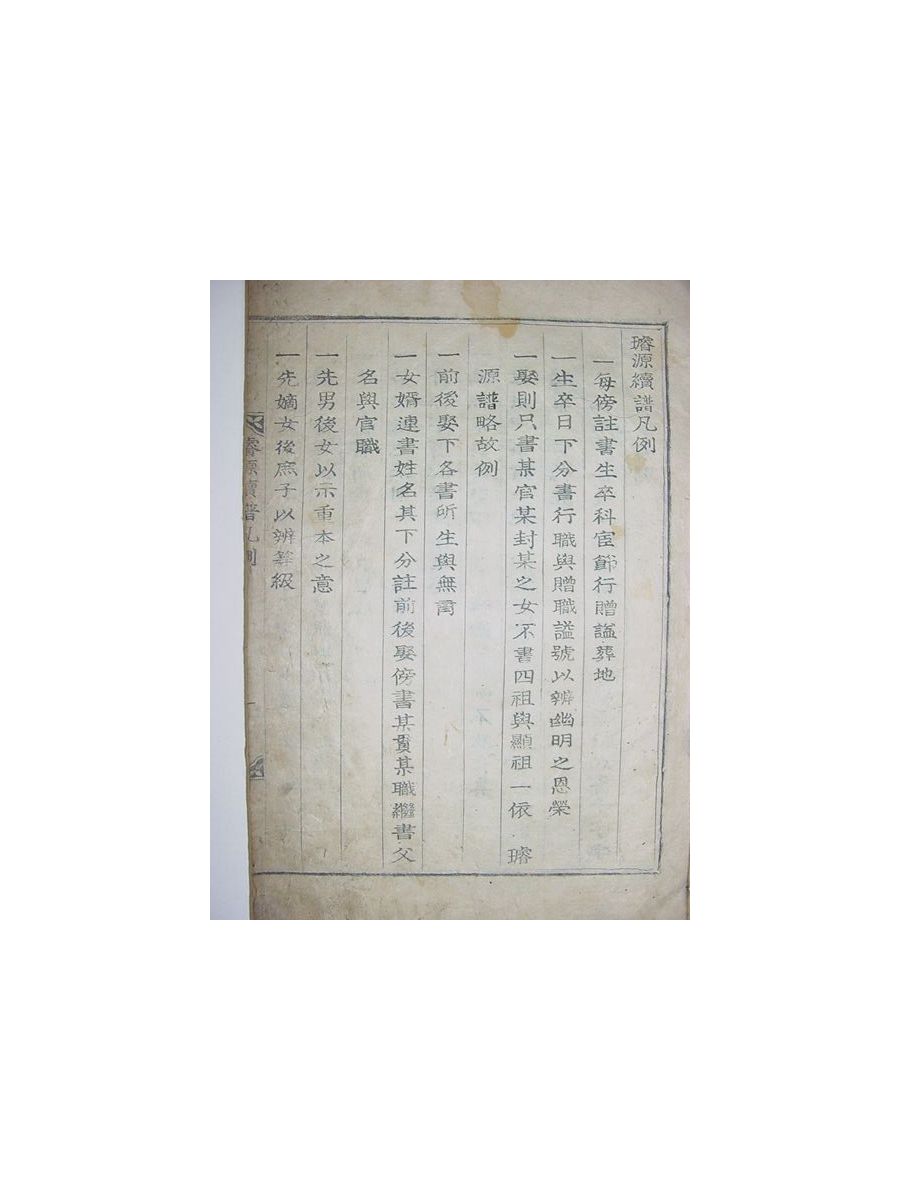 璿源續譜凡例
一每傍註書生卒科宦節行贈諡葬地
一生卒日下分書行職與贈職諡號以辨幽明之恩榮
一娶則只書某官某封某之女不書四祖與顯祖一依 璿
源譜略故例
一前後娶下各書所生與無育
一女婿連書姓名其下分註前後娶傍書某貫某職繼書父
名與官職
一先男後女以示重本之意
一先嫡女後庶子以辨等級
璿源續譜凡例
一